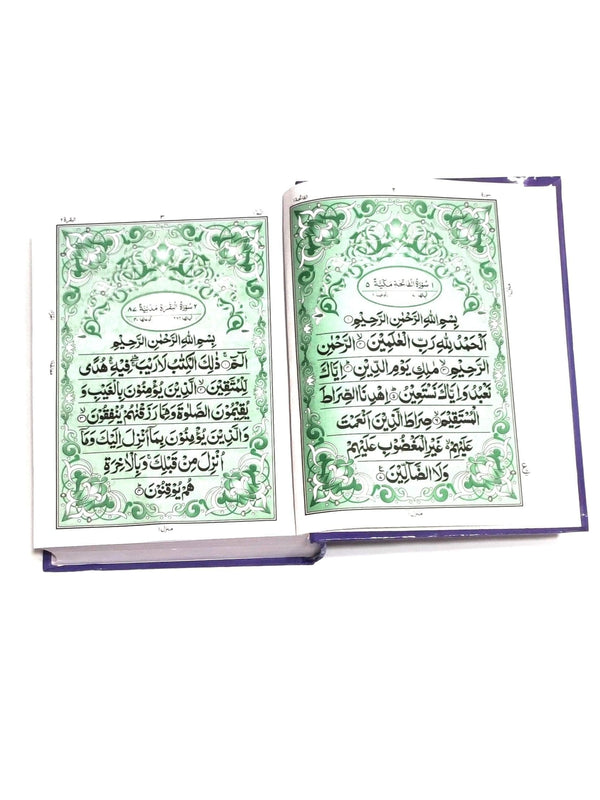 سورة
٢
الفاتحة
١ سُوْرَةُ الْفَاتِحَةِ مَكِّيَّةٌ ٥
بِسْمِ اللهِ الرَّحْمٰنِ الرَّحِيْمِ
اَلْحَمْدُ لِلّٰهِ رَبِّ الْعٰلَمِيْنَ الرَّحْمٰنِ
الرَّحِيْمِ مٰلِكِ يَوْمِ الدِّيْنِ اِيَّاكَ
نَعْبُدُ وَاِيَّاكَ نَسْتَعِيْنُ اِهْدِنَا الصِّرَاطَ
الْمُسْتَقِيْمَ صِرَاطَ الَّذِيْنَ اَنْعَمْتَ
عَلَيْهِمْ غَيْرِ الْمَغْضُوْبِ عَلَيْهِمْ
وَلَا الضَّآلِّيْنَ
منزل ١
٣
البقرة ٢
٢ سُوْرَةُ الْبَقَرَةِ مَدَنِيَّةٌ ٨٧
بِسْمِ اللهِ الرَّحْمٰنِ الرَّحِيْمِ
الٓمّٓ ذٰلِكَ الْكِتٰبُ لَا رَيْبَ فِيْهِ هُدًى
لِّلْمُتَّقِيْنَ الَّذِيْنَ يُؤْمِنُوْنَ بِالْغَيْبِ وَ
يُقِيْمُوْنَ الصَّلٰوةَ وَمِمَّا رَزَقْنٰهُمْ يُنْفِقُوْنَ
وَالَّذِيْنَ يُؤْمِنُوْنَ بِمَآ اُنْزِلَ اِلَيْكَ وَمَآ
اُنْزِلَ مِنْ قَبْلِكَ وَبِالْاٰخِرَةِ
هُمْ يُوْقِنُوْنَ
منزل ١